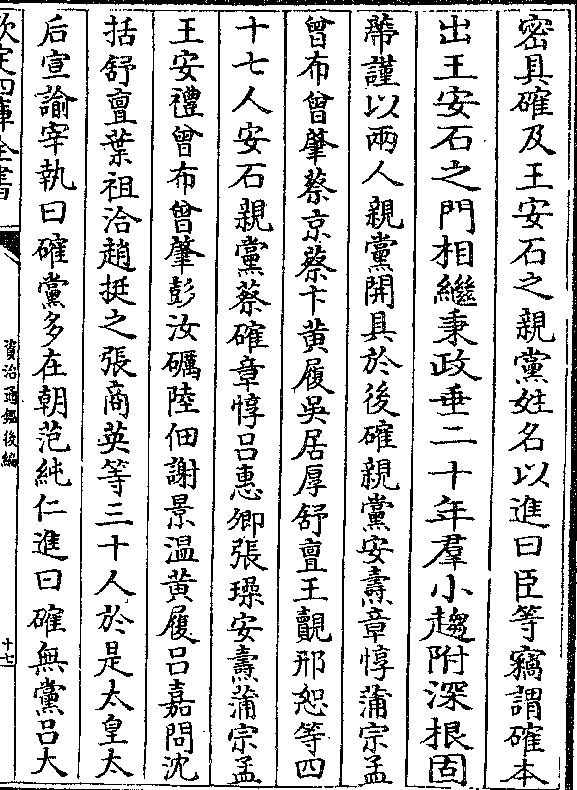 密具確及王安石之親黨姓名以進曰臣等竊謂確本
出王安石之門相繼秉政垂二十年羣小趨附深根固
蔕謹以兩人親黨開具於後確親黨安燾章惇蒲宗孟
曾布曾肇蔡京蔡卞黃履吳居厚舒亶王覿邢恕等四
十七人安石親黨蔡確章惇呂惠卿張璪安燾蒲宗孟
王安禮曾布曾肇彭汝礪陸佃謝景溫黃履呂嘉問沈
括舒亶葉祖洽趙挺之張商英等三十人於是太皇太
后宣諭宰執曰確黨多在朝范純仁進曰確無黨呂大
欽定四庫全書
資治通鑑後編
十七